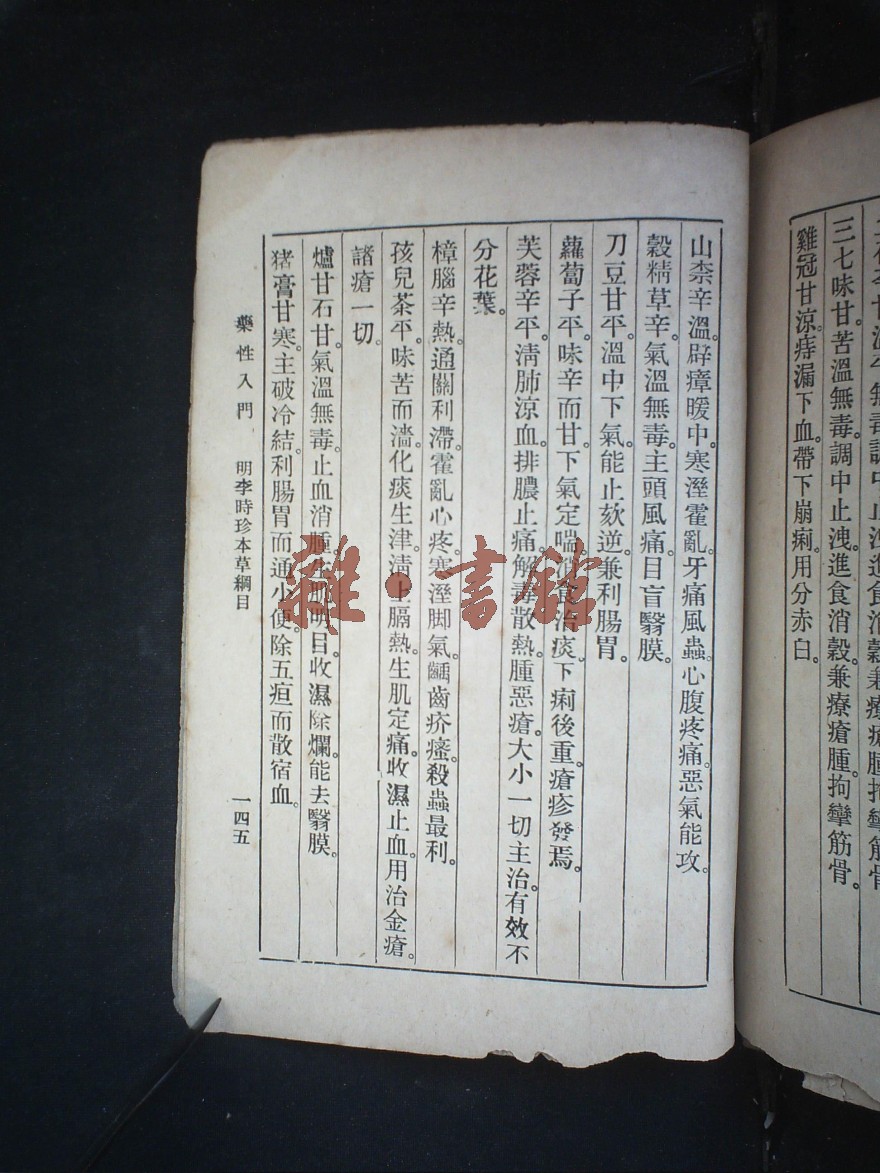 味甘溫平無毒調中止洩進食消穀兼療瘡腫拘攣筋骨
三七味甘苦溫無毒調中止洩進食消穀兼療瘡腫拘攣筋骨。
雞冠甘涼。痔漏下血。帶下崩痢。用分赤白。
山柰辛溫。辟瘴暖中。寒溼霍亂。牙痛風蟲。心腹疼痛。惡氣能攻。
穀精草辛。氣溫無毒。主頭風痛。目盲翳膜。
刀豆甘平。溫中下氣。能止欬逆。兼利腸胃。
蘿蔔子平。味辛而甘。下氣定喘。消食治痰。下痢後重。瘡疹發焉。
芙蓉辛平。淸肺涼血。排膿止痛。解毒散熱。腫惡瘡。大小一切。主治有效。不
分花葉。
樟腦辛熱。通關利滯。霍亂心疼。寒溼脚氣。齲齒疥癬。殺蟲最利。
孩兒茶平。味苦而濇。化痰生津。淸上膈熱。生肌定痛。收濕止血。用治金瘡。
諸瘡一切。
爐甘石甘。氣溫無毒。止血消腫。生肌明目。收濕除爛。能去翳膜。
猪膏甘寒。主破冷結。利腸胃而通小便。除五疸而散宿血。
藥性入門 明李時珍本草綱目 一四五
雜·書館